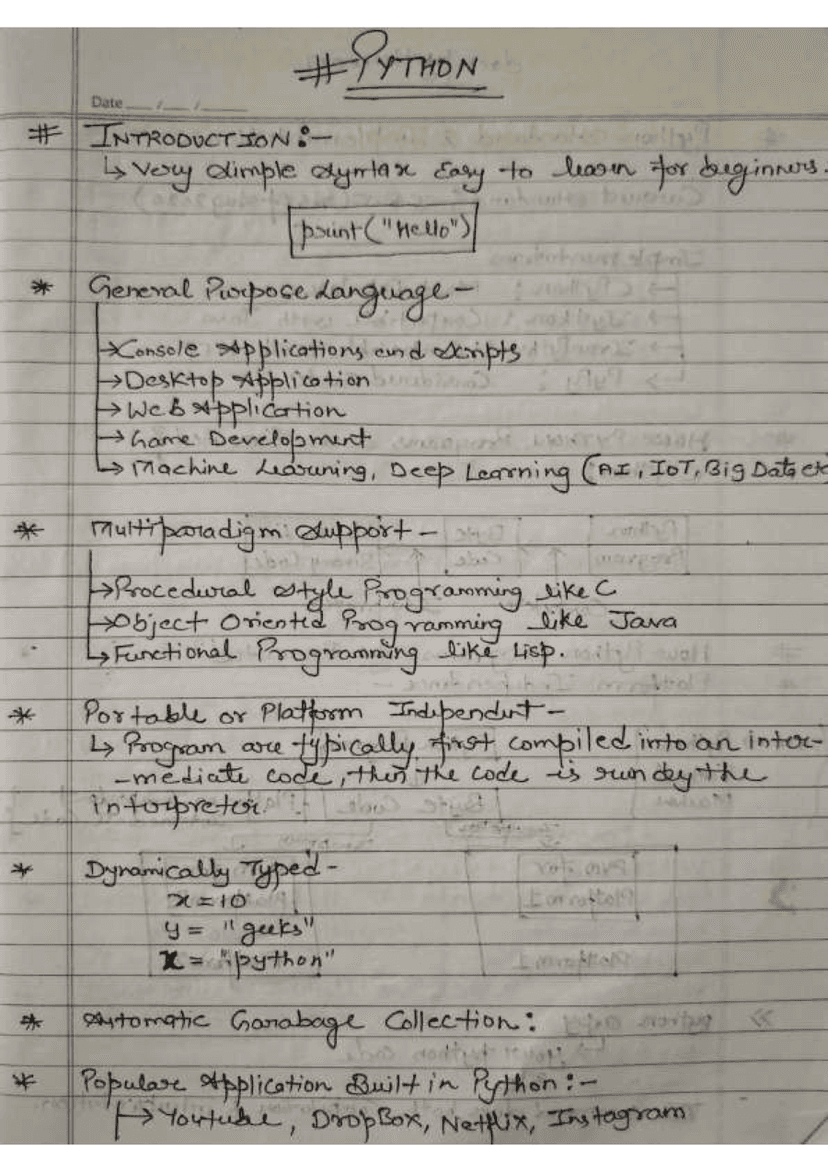 # PYTHON
Date __/__/____
# INTRODUCTION :-
↳ Very simple syntax Easy to learn for beginners.
print("Hello")
* General Purpose Language -
→ Console Applications and Scripts
→ Desktop Application
→ Web Application
→ Game Development
↳ Machine Learning, Deep Learning (AI, IoT, Big Data etc
* Multiparadigm Support -
→ Procedural style Programming like C
→ Object Oriented Programming like Java
↳ Functional Programming like Lisp.
* Portable or Platform Independent -
↳ Program are typically first compiled into an inter-
-mediate code, then the code is run by the
interpretor.
* Dynamically Typed -
x = 10
y = "geeks"
x = "python"
* Automatic Garabage Collection :
* Popular Application Built in Python :-
↳ Youtube, DropBox, Netflix, Instagram